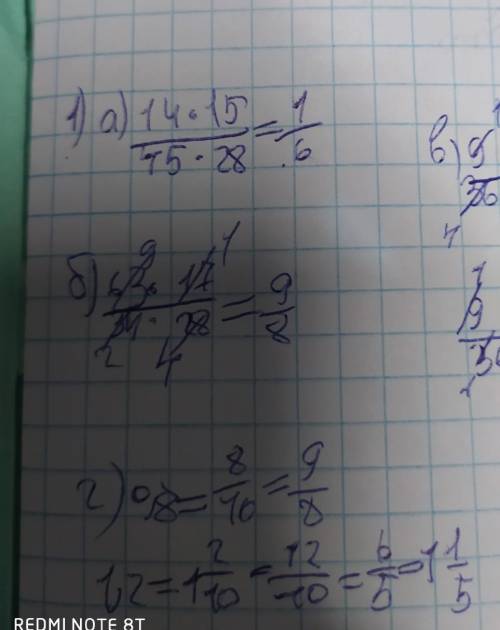 1) а) 14·15/75·28 = 1/6
в) 9/36
4
б) 63· 17/34· 28 = 9/8
9 1
2 4
1
9/36
г) 0,8 = 8/10 = 9/8
1,2 = 1 2/10 = 12/10 = 6/5 = 1 1/5
REDMI NOTE 8T